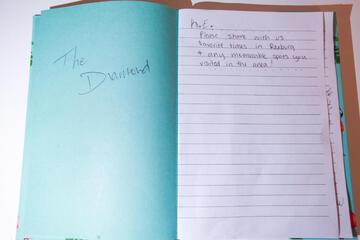 The
Diamond
N.E.
Please share with us
favorite times in Rexburg
& any memorable spots you
visited in the area!